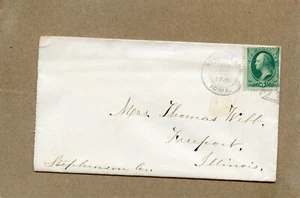 IOWA.
Mrs Thomas Webb.
Freeport,
Illinois.
Stephenson Co.,